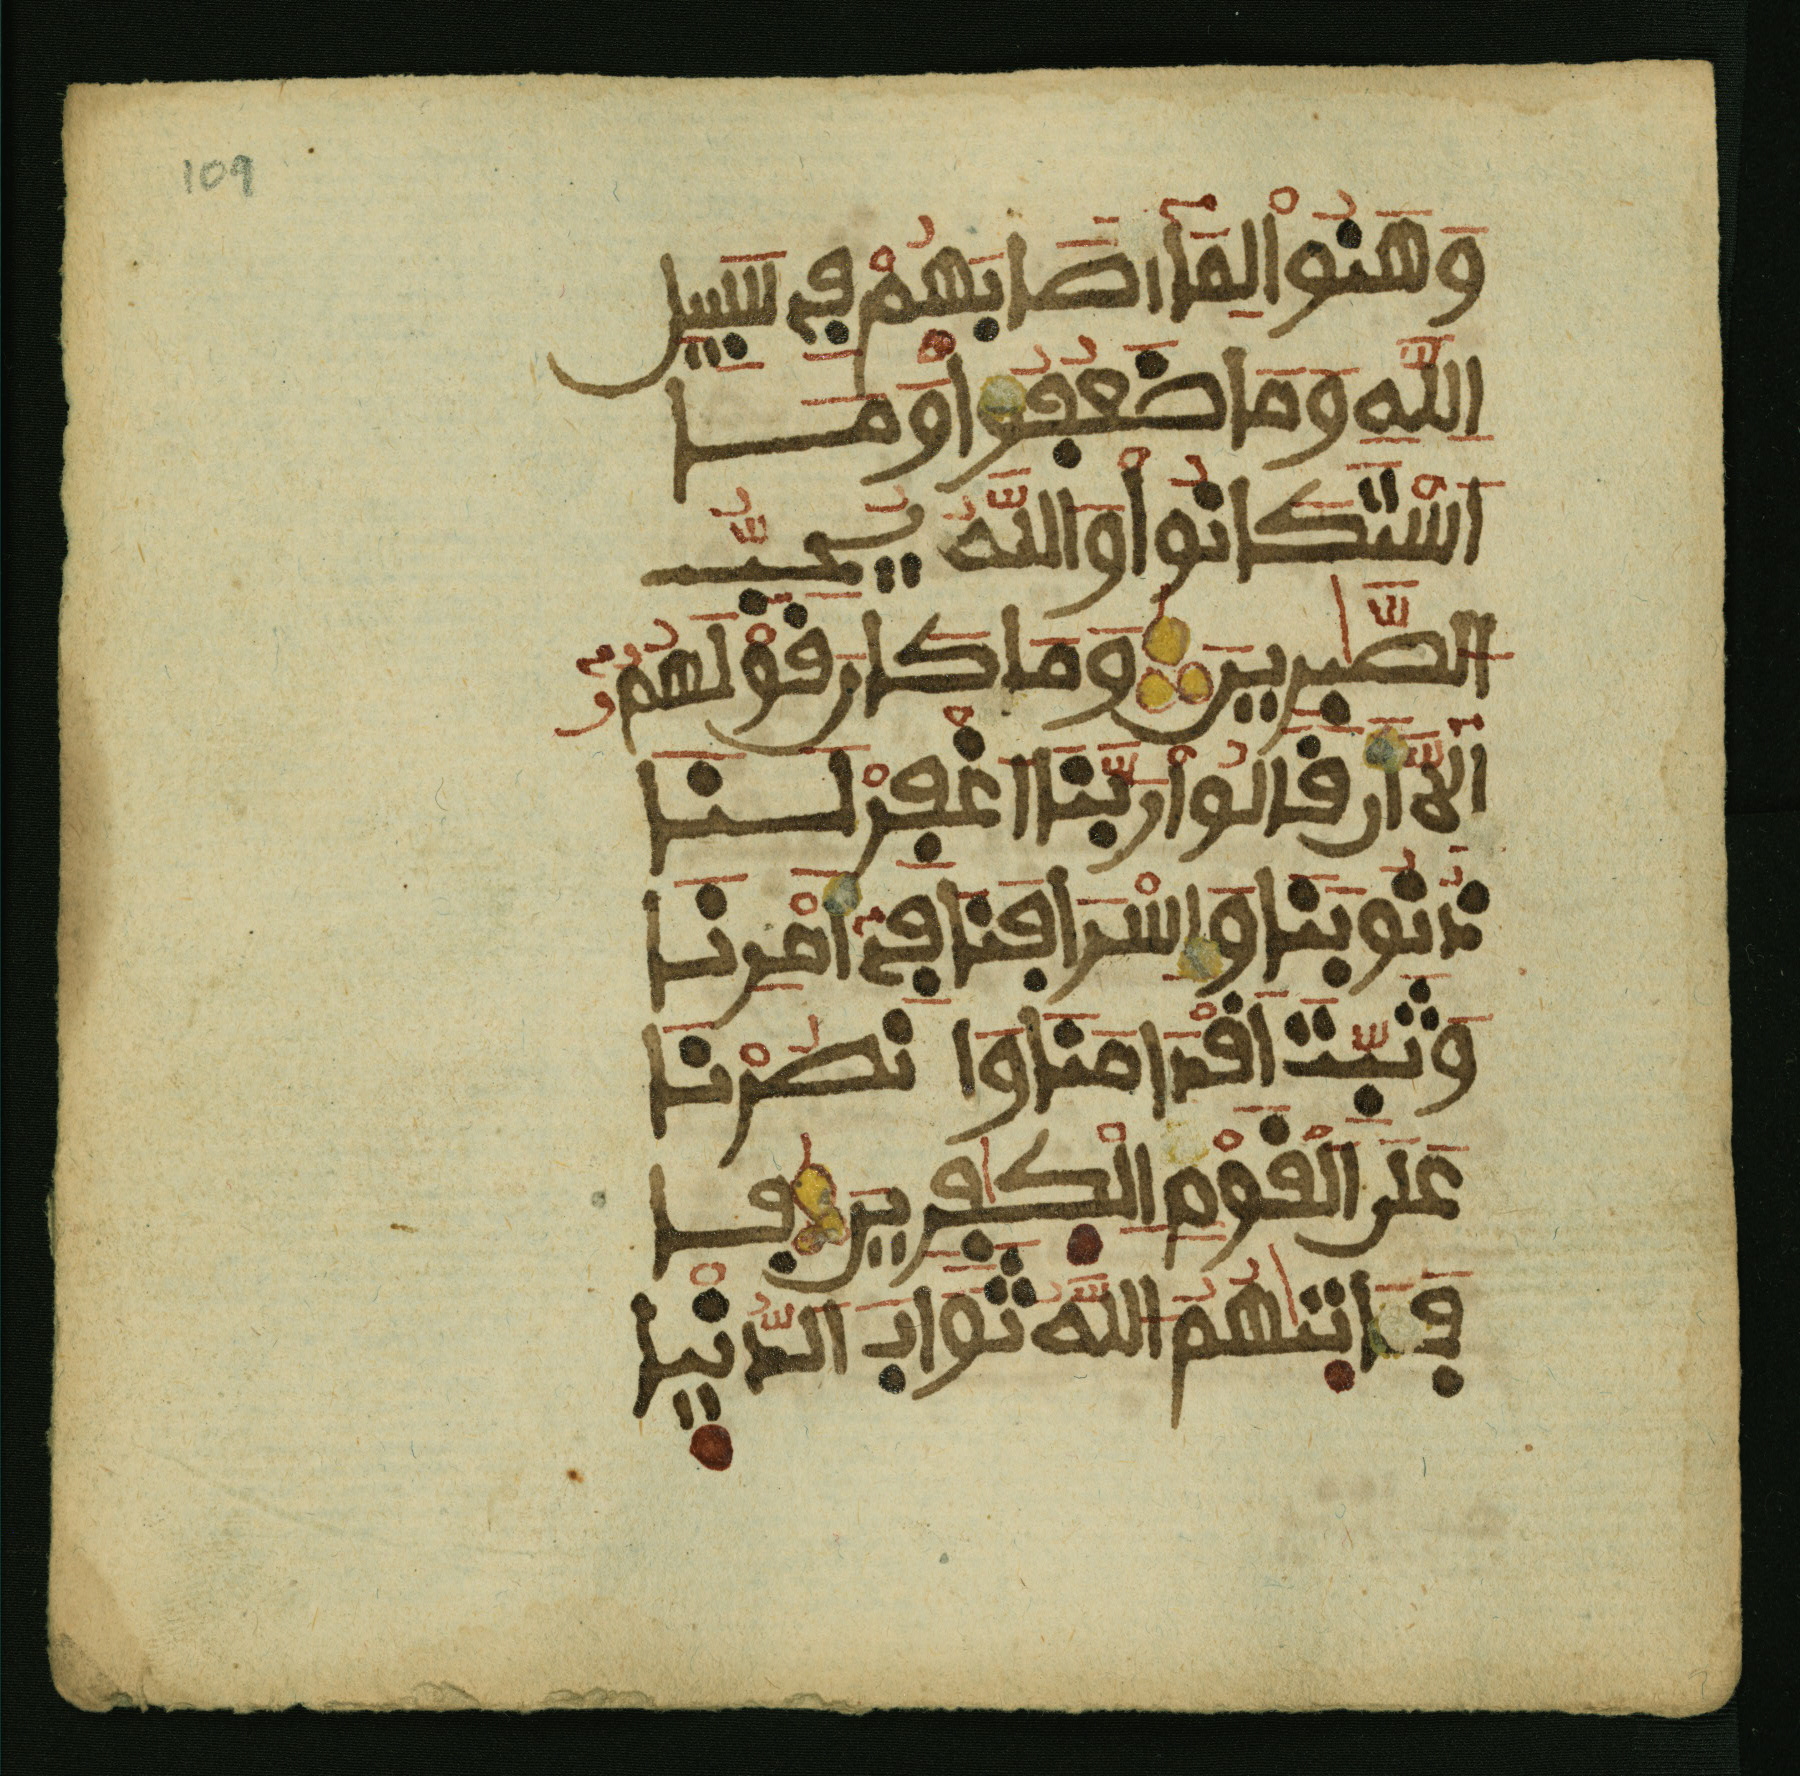 109
وَهَنُواْ لِمَآ أَصَابَهُمْ فِے سَبِيلِ
اِ۬للَّهِ وَمَا ضَعُفُواْ وَمَا
اَسْتَكَانُواْ وَاللَّهُ يُحِبُّ
اُ۬لصَّٰبِرِينَ وَمَا كَانَ قَوْلَهُمُۥٓ
إِلَّآ أَن قَالُواْ رَبَّنَا اَ۪غْفِرْ لَنَا
ذُنُوبَنَا وَإِسْرَافَنَا فِےٓ أَمْرِنَا
وَثَبِّتَ اَقْدَامَنَا وَا نصُرْنَا
عَلَي اَ۬لْقَوْمِ اِ۬لْكٰفِرِينَ فَا
فَـَٔاتٰىٰهُمُ اُ۬للَّهُ ثَوَابَ اَ۬لدُّنْيٰا